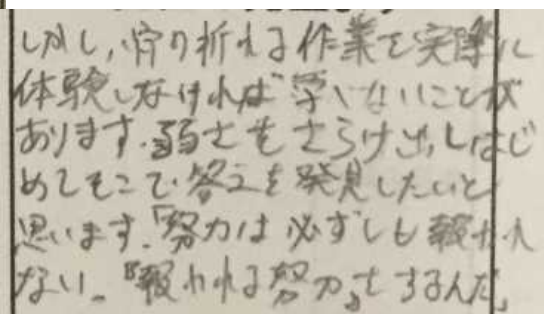 しかし、骨の折れる作業を実際に
体験しなければ学べないことが
あります。弱さをさらけ出しはじ
めてそこで答えを発見したいと
思います。「努力は必ずしも報われ
ない。『報われる努力』をするんだ」